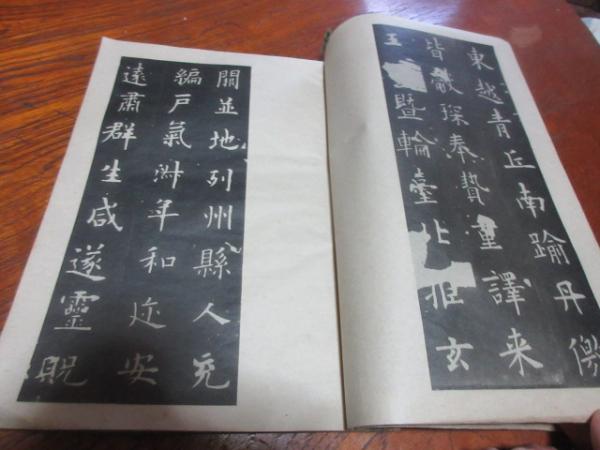 東越青丘南踰丹徼
皆獻琛奉贄重譯来
王暨輪臺北拒玄
闕並地列州縣人充
編戶氣淑年和迩安
遠肅群生咸遂靈貺